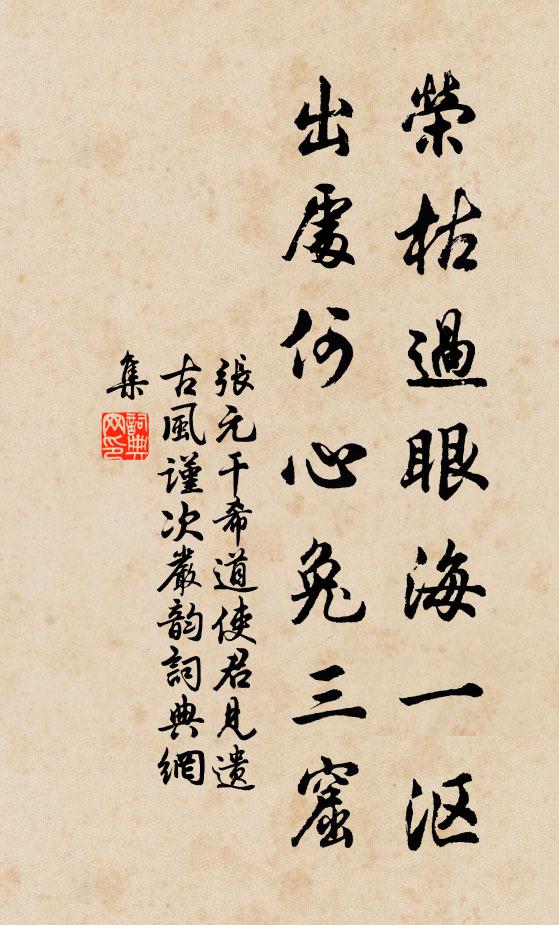 榮枯過眼海一沤
出處何心兔三窟
張元干希道使君見遺
古風謹次嚴韵詞典網
集
詞典网印